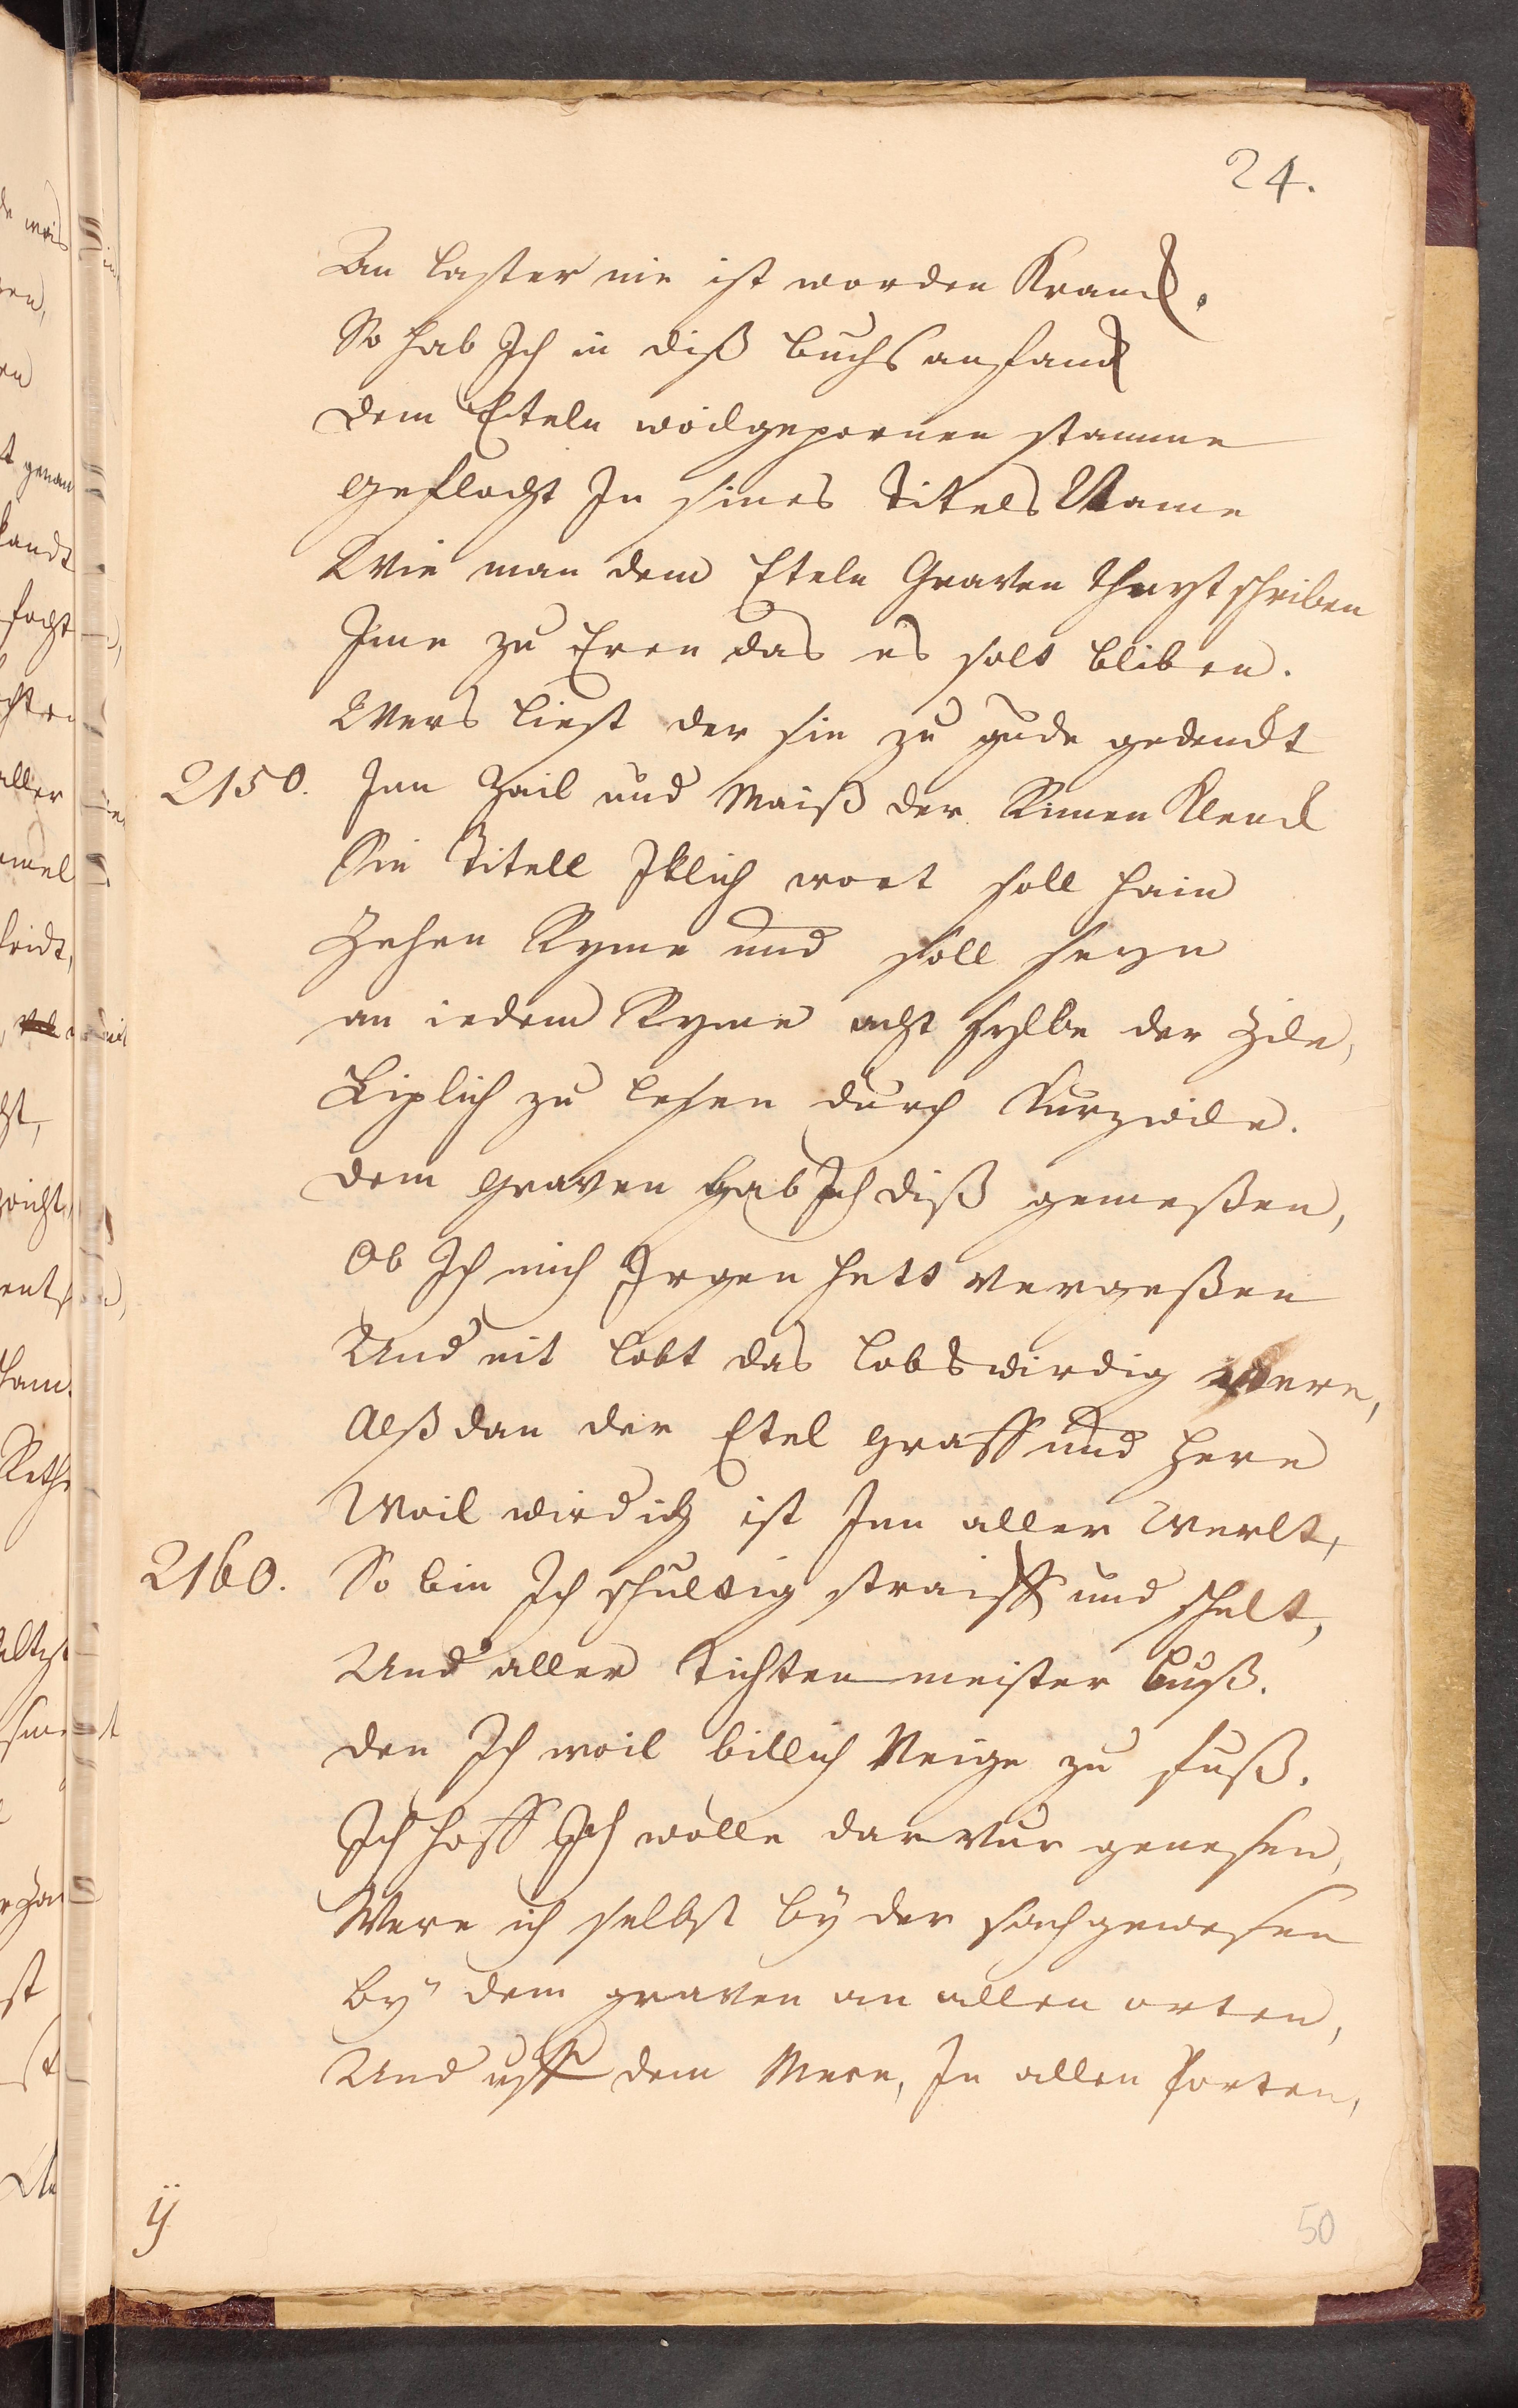 24.
An laster nie ist worden Kranck.
So hab Ich in diß buchs anfanck
dem Eteln woilgepornen stamme
geflocht In sines Titels Name
Wie man dem Eteln Graven thuyt schriben
Ime zu Eren das es solt bliben.
Wers liest der sin zu gude gedenckt
2150. Inn Zail und Maiß der Rimen Klenck
Sin Titell Iklich wort soll hain
Zehen Ryme und soll seyn
an iedem Ryme acht sylbe der Zile,
Liplich zu lesen durch Kurzwile.
dem graven hab Ich diß gemeßen,
Ob Ich mich Irgen hett vergeßen
Und nit lobt das lobswirdig were,
Alß dan der Etel graff und here
Woil wirdich ist Inn aller Werlt,
2160. So bin Ich schultig straiff und schelt,
Und aller tichten meister buß.
den Ich woil billich Neige zu fuß.
Ich hoff Ich wölle darvur genesen,
Were ich selbst by der sach gewesen
by dem graven an allen orten,
Und uff dem Mere, In allen Porten,
ÿ
50